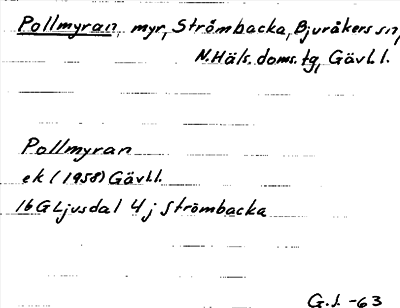 Pollmyran, myr, Strömbacka, Bjuråkers sn,
N.Häls. doms. tg, Gävl. l.
Pollmyran
ek (1958) Gävl.l.
16 G Ljusdal 4 j Strömbacka
G.J. -63